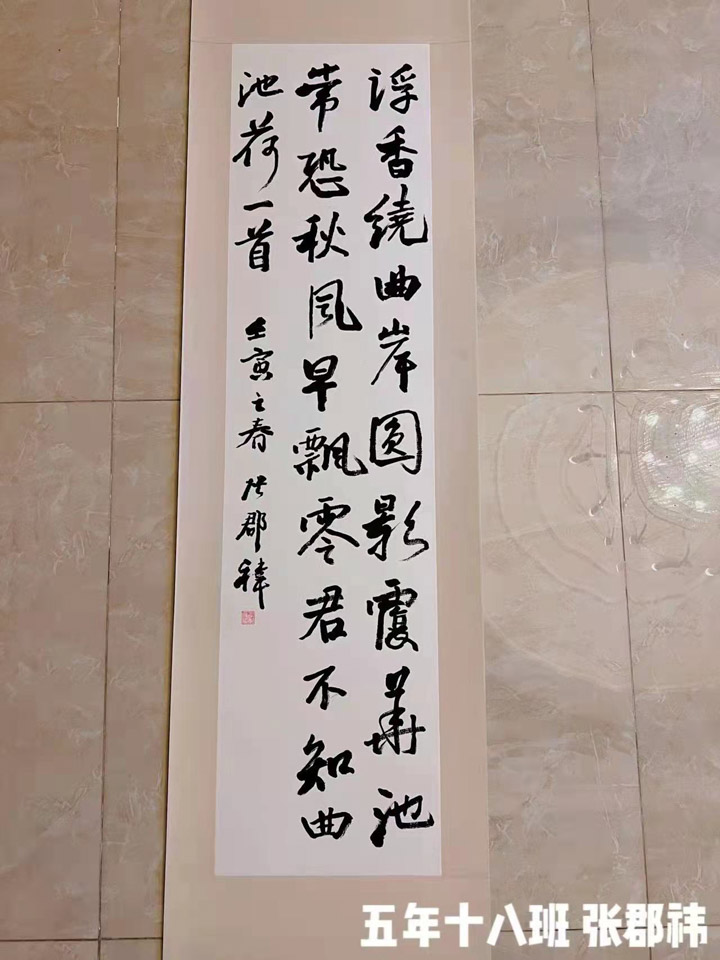 浮香繞曲岸圆影覆華池
常恐秋風早飄零君不知曲
池荷一首 壬寅之春 张郡禕
五年十八班 张郡祎